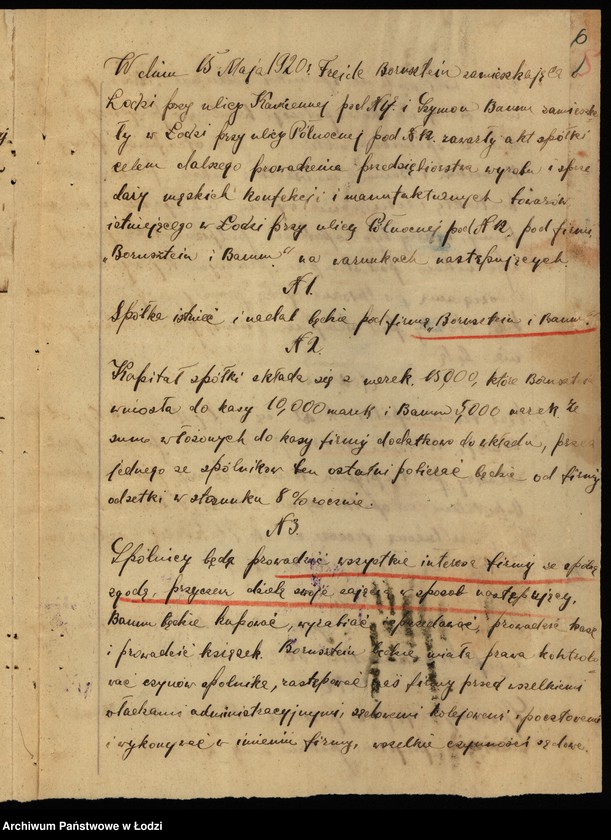 6
W dniu 15 Maja 1920 r Frejda Bornsztein zamieszkająca w
Łodzi przy ulicy Kamiennej pod N i Szymon Baum zamieszk
ły w Łodzi przy ulicy Północnej pod N 12. zawarły akt spółki
celem dalszego prowadzenia przedsiębiorstwa wyrobu i sprze
daży męskich konfekcji i manufakturnych towarów
istniejącego w Łodzi przy ulicy Północnej pod N 12. pod firmą
„Bornsztein i Baum." na warunkach następujących.
N 1.
Spółka istnieć i nadal będzie pod firmą „Bornsztein i Baum."
N 2.
Kapitał spółki składa się z marek. 15,000, które Bornsztein
wniosła do kasy 10,000 marek i Baum 5,000 marek Ze
sumy włożonych do kasy firmy dodatkowo do wkładu, przez
jednego ze spólników ten ostatni policzać będzie od firmy
odsetki w stosunku 8% rocznie.
N 3.
Spólnicy będą prowadzić wszystkie interesa firmy ze spólną
zgodą, przyczem dzielą swoje zajęcia w sposób następujący,
Baum będzie kupować, wyrabiać i sprzedawać, prowadzić kasę
i prowadzić książek. Bornsztein będzie miała prawa kontrolo
wać czynów spólnika, zastępować firmy przed wszelkiemi
władzami administracyjnymi, sądowemi kolejowemi i pocztowemi
i wykonywać w imieniu firmy, wszelkie czynności sądowe.
Archiwum Państwowe w Łodzi